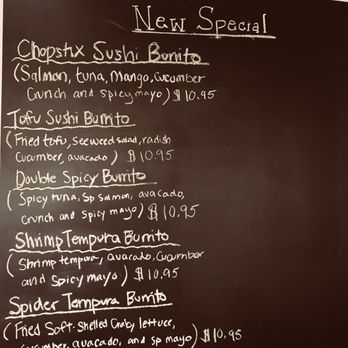 New Special
Chopstix Sushi Burrito
(Salmon, tuna, Mango, Cucumber
Crunch and spicy mayo) $10.95
Tofu Sushi Burrito
(Fried tofu, seeweed salad, radish
Cucumber, avacado) $10.95
Double Spicy Burrito
(Spicy tuna, sp salmon, avacado,
crunch and spicy mayo) $10.95
Shrimp Tempura Burrito
(Shrimp tempura, avacado, Cucumber
and spicy mayo) $10.95
Spider Tempura Burrito
(Fried Soft-Shelled Crab, lettuce,
cucumber, avacado, and sp mayo) $10.95